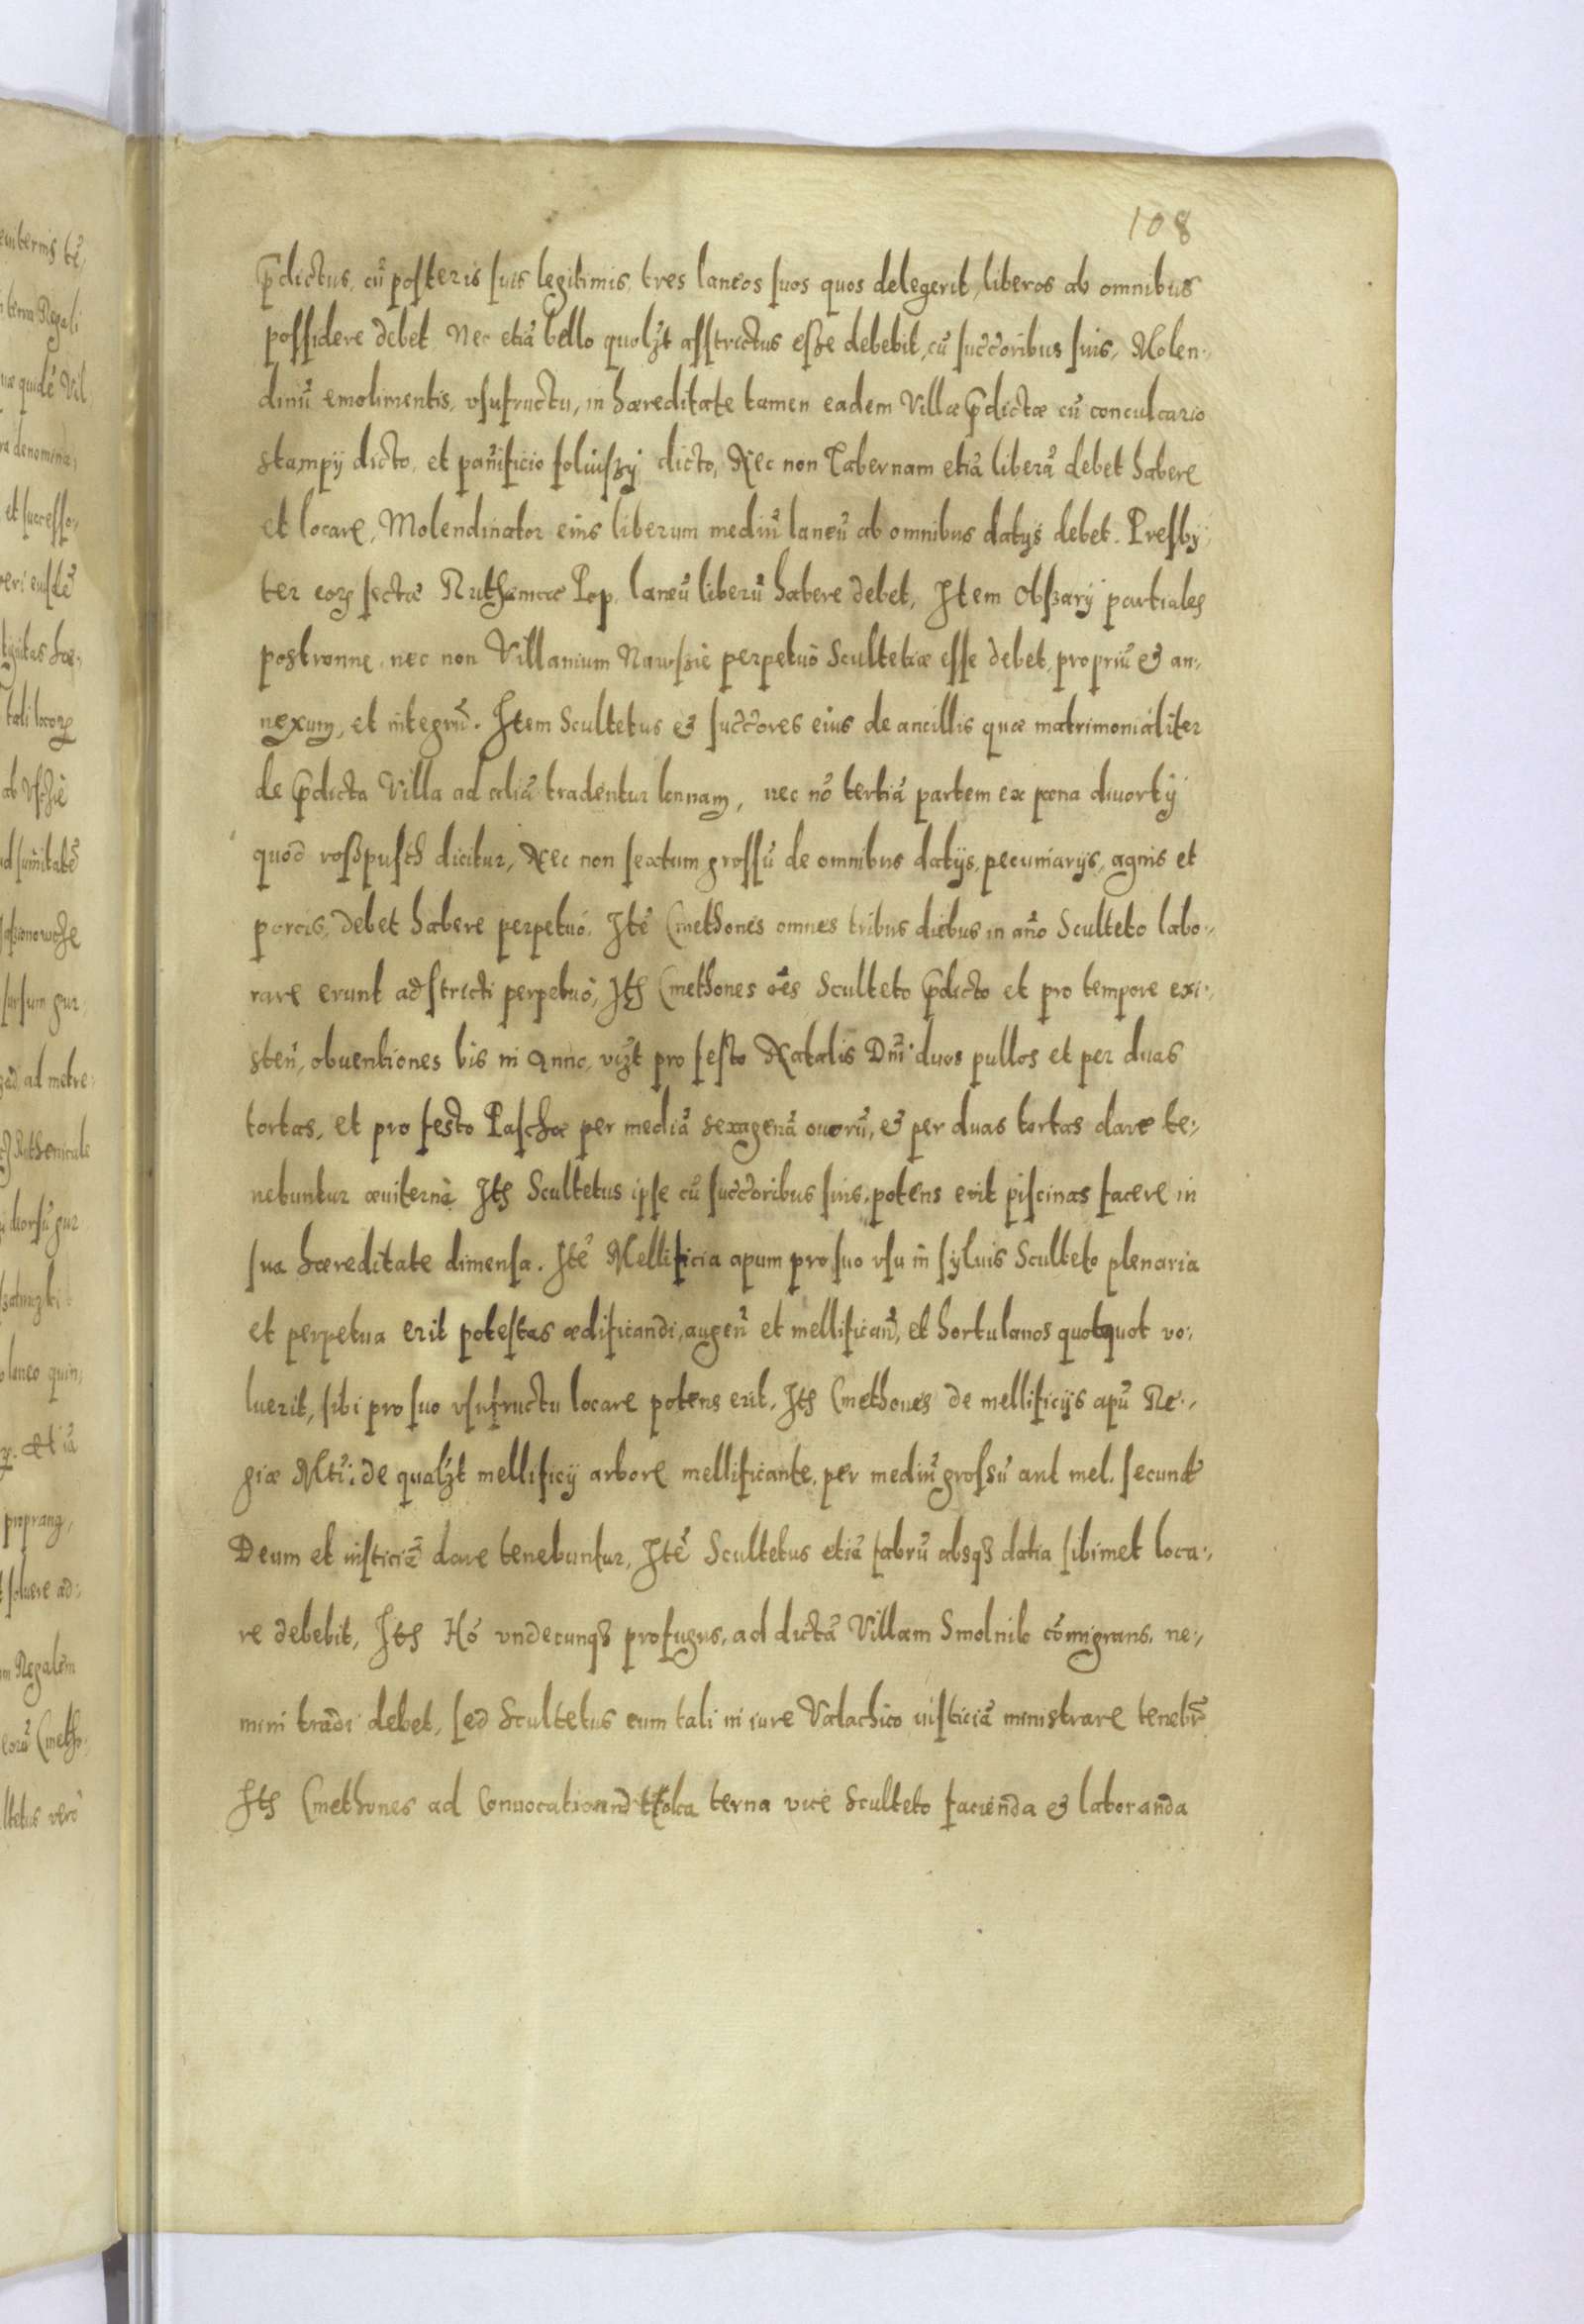 108
p̄dictus, cū posteris suis legitimis, tres laneos suos quos delegerit, liberos ab omnibus
possidere debet Nec etiā bello quolzt asstrictus esse debebit, cū succ̄oribus suis, Molen-
dinū emolimentis, vsufructu, in hæreditate tamen eadem Villæ p̄dictæ cū conculcario
stampy dicto, et pan̄ificio foluszy dicto, Nec non Tabernam etiā liberā debet habere
et locare, Molendinator eius liberum mediū laneū ab omnibus datijs debet. Presby-
ter eorꝫ sectæ Ruthenicæ Pop laneū liberū habere debet, Item Obszary partiales
postronne, nec non Villanium Nawsie perpetuò Scultetiæ esse debet, propriū & an-
nexum, et integrū. Item Scultetus & succ̄ores eius de ancillis quæ matrimonialiter
de p̄dicta Villa ad aliā tradentur lonnam, nec nō tertiā partem ex pœna diuortij
quod rospusth dicitur, Nec non sextum grossū de omnibus datijs, pecuniarijs, agnis et
porcis, debet habere perpetuò. Itē Cmethones omnes tribus diebus in an̄o Sculteto labo-
rare erunt adstricti perpetuò, Itꝫ Cmethones oēs Sculteto p̄dicto et pro tempore exi-
sten̄, obuentiones bis in Anno, vizt pro festo Natalis Dn̄i duos pullos et per duas
tortas, et pro festo Paschæ per mediā sexagenā ouorū, & per duas tortas dare te-
nebuntur æuiternè Itꝫ Scultetus ipse cū succ̄oribus suis, potens erit piscinas facere in
sua hæreditate dimensa. Itē Mellificia apum pro suo vsu in syluis Sculteto plenaria
et perpetua erit potestas ædificandi, augen̄ et mellifican̄, et hortulanos quotquot vo-
luerit, sibi pro suo vsufructu locare potens erit, Itꝫ Cmethones de mellificijs apū Re-
giæ Mti: de qualzt mellificij arbore mellificante, per mediū grossū aut mel. secund
Deum et iusticiā dare tenebuntur, Itē Scultetus etiā fabrū absqꝫ datia sibimet loca-
re debebit, Itꝫ Hō vndecunqꝫ profugus, ad dictā Villam Smolnik cōmigrans, ne-
mini tradi debet, sed Scultetus cum tali in iure Valachico iusticiā ministrare tenebr̄
Itꝫ Cmethones ad Conuocationē tloka terna vice Sculteto facienda & laboranda